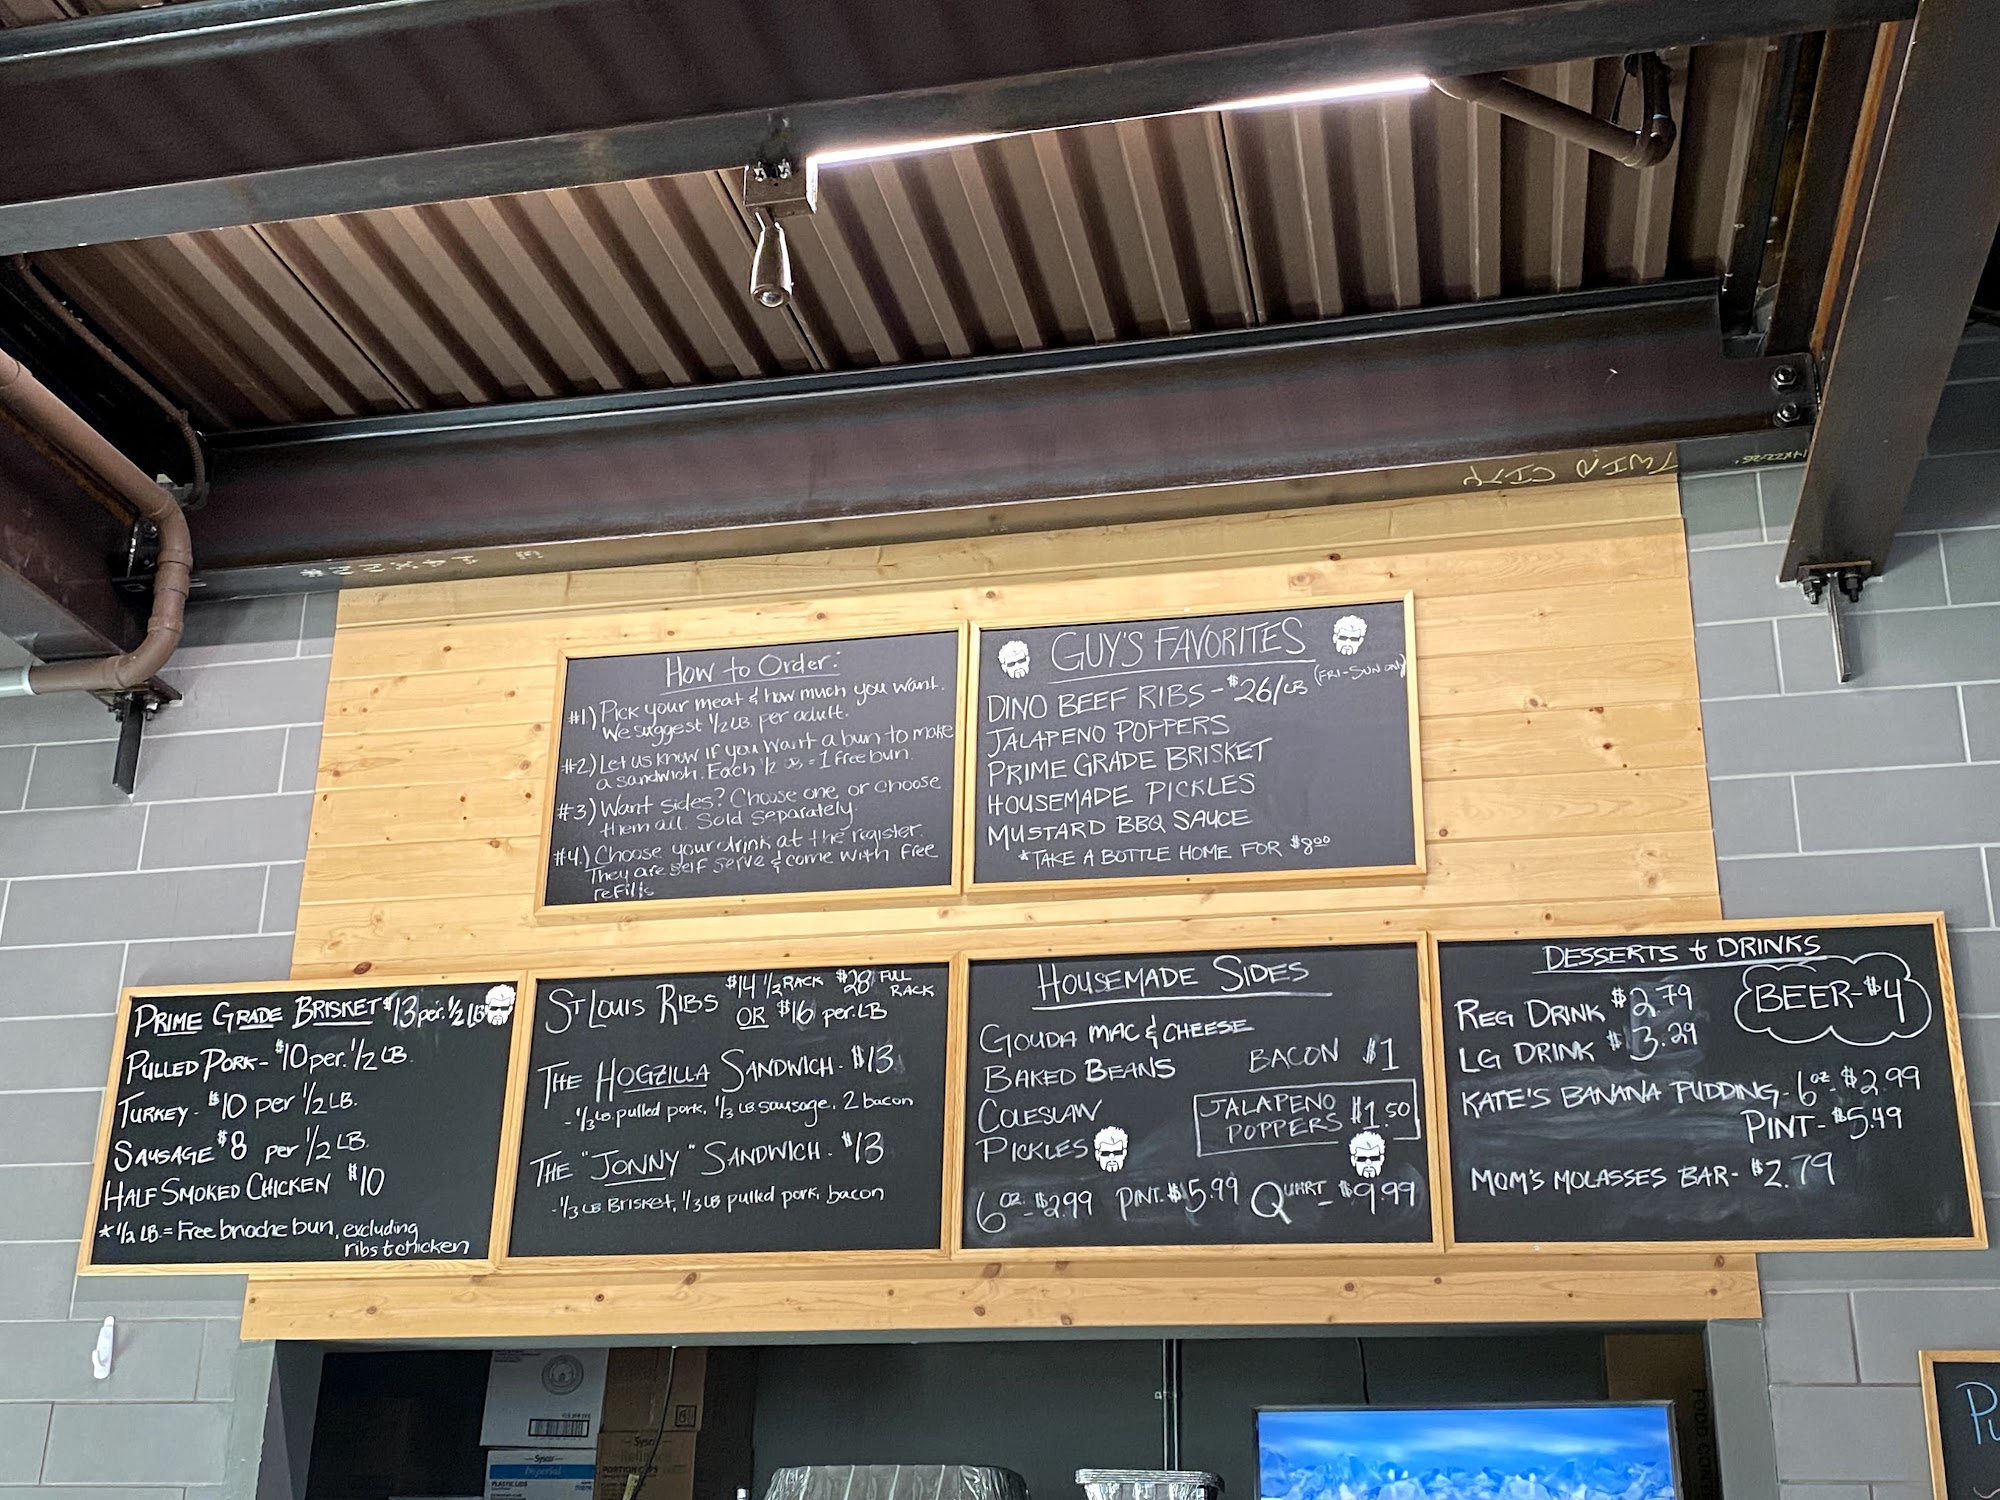 How to Order:
#1) Pick your meat & how much you want.
We suggest 1/2 LB. per adult.
#2) Let us know if you want a bun to make
a sandwich. Each 1/2 LB = 1 free bun.
#3) Want sides? Choose one or choose
them all. Sold separately.
#4.) Choose your drink at the register.
They are self serve & come with free
refills
GUY'S FAVORITES
DINO BEEF RIBS - $26/LB (FRI-SUN only)
JALAPENO POPPERS
PRIME GRADE BRISKET
HOUSEMADE PICKLES
MUSTARD BBQ SAUCE
*TAKE A BOTTLE HOME FOR $8.00
PRIME GRADE BRISKET $13 per. 1/2 LB
PULLED PORK - $10 per. 1/2 LB.
TURKEY - $10 per 1/2 LB.
SAUSAGE $8 per 1/2 LB.
HALF SMOKED CHICKEN $10
*1/2 LB. = Free brioche bun, excluding
ribs & chicken
ST LOUIS RIBS $14 1/2 RACK $28 FULL RACK
OR $16 per. LB
THE HOGZILLA SANDWICH - $13
- 1/3 LB. pulled pork, 1/3 LB sausage, 2 bacon
THE "JONNY" SANDWICH - $13
- 1/3 LB Brisket, 1/3 LB pulled pork, bacon
HOUSEMADE SIDES
GOUDA MAC & CHEESE
BAKED BEANS
COLESLAW
PICKLES
BACON $1
JALAPENO POPPERS $1.50
6 OZ. - $2.99 PINT - $5.99 QUART - $9.99
DESSERTS & DRINKS
REG DRINK $2.79
LG DRINK $3.29
BEER - $4
KATE'S BANANA PUDDING - 6 OZ - $2.99
PINT - $5.49
MOM'S MOLASSES BAR - $2.79
TWIN CITY
Sysco
Imperial
PLASTIC LIDS
Sysco
Reliance
PORTION CUPS
PU